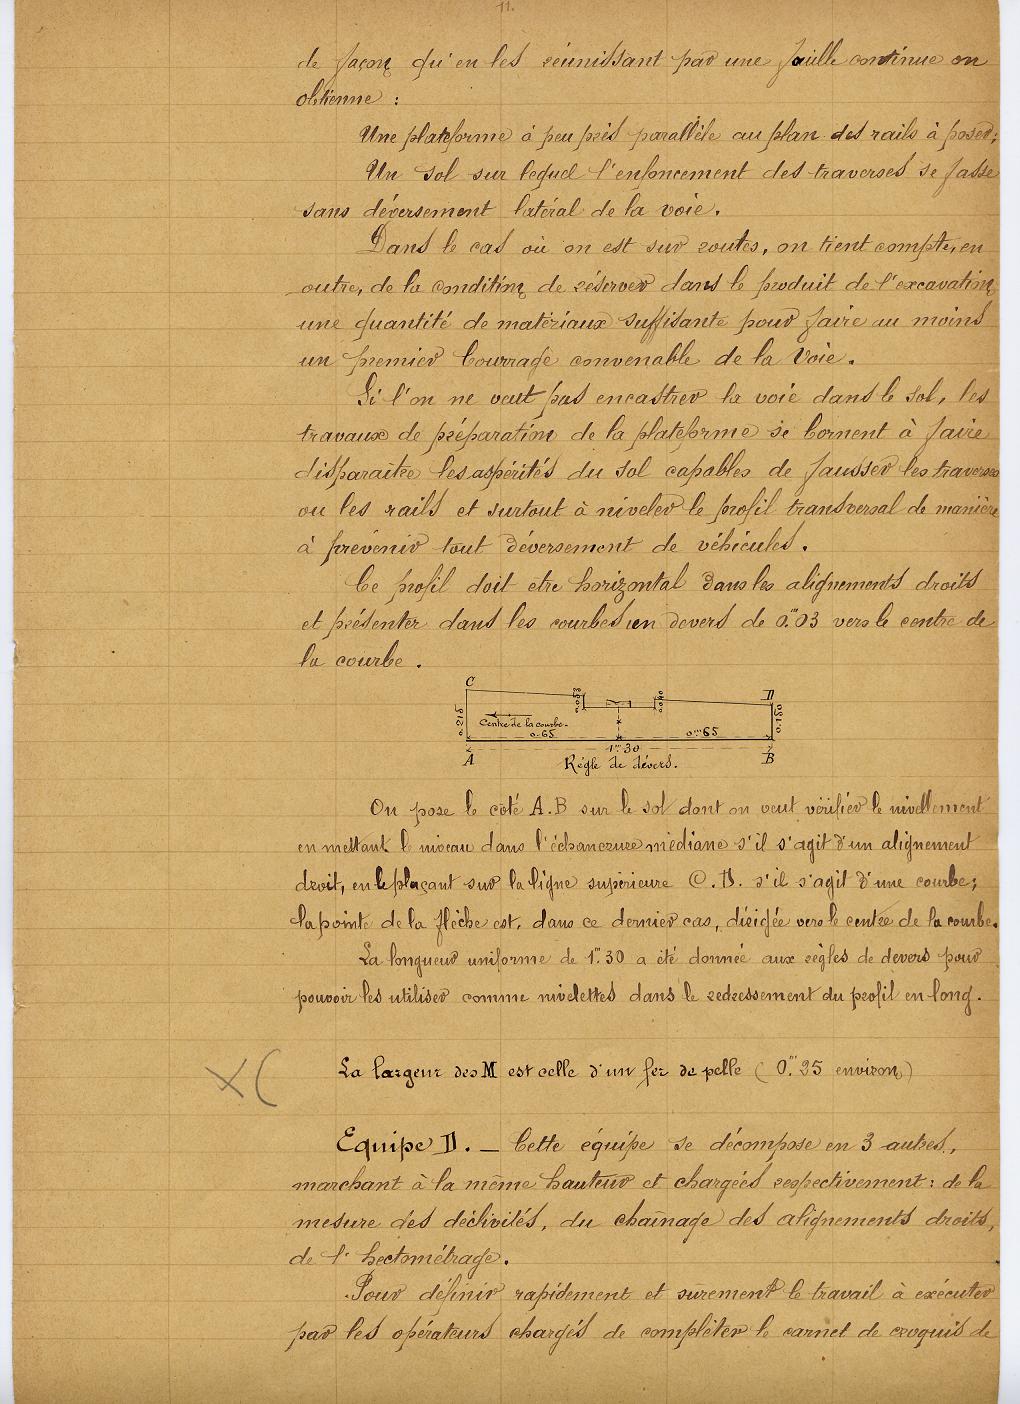 11.
de façon qu'en les réunissant par une faille continue on
obtienne :
Une plateforme à peu près parallèle au plan des rails à poser;
Un sol sur lequel l'enfoncement des traverses se fasse
sans déversement latéral de la voie.
Dans le cas où on est sur routes, on tient compte, en
outre, de la condition de réserver dans le produit de l'excavation
une quantité de matériaux suffisante pour faire au moins
un premier bourrage convenable de la Voie.
Si l'on ne veut pas encastrer la voie dans le sol, les
travaux de préparation de la plateforme se bornent à faire
disparaitre les aspérités du sol capables de fausser les traverses
ou les rails et surtout à niveler le profil transversal de manière
à prévenir tout déversement de véhicules.
Ce profil doit etre horizontal dans les alignements droits
et présenter dans les courbes un devers de 0.m03 vers le centre de
la courbe.
C D
0.215 0.180
Centre de la courbe.
0.65 0.m65
1.m30
A B
Règle de dévers.
On pose le côté A.B sur le sol dont on veut vérifier le nivellement
en mettant le niveau dans l'échancrure médiane s'il s'agit d'un alignement
droit, en le plaçant sur la ligne supérieure C.D. s'il s'agit d'une courbe;
la pointe de la flèche est, dans ce dernier cas, dirigée vers le centre de la courbe.
La longueur uniforme de 1.m30 a été donnée aux règles de devers pour
pouvoir les utiliser comme nivelettes dans le redressement du profil en long.
La largeur des M est celle d'un fer de pelle (0.m25 environ)
Equipe D. _ Cette équipe se décompose en 3 autres,
marchant à la même hauteur et chargées respectivement : de la
mesure des déclivités, du chaînage des alignements droits,
de l'hectométrage.
Pour définir rapidement et sûrement le travail à exécuter
par les opérateurs chargés de compléter le carnet de croquis de